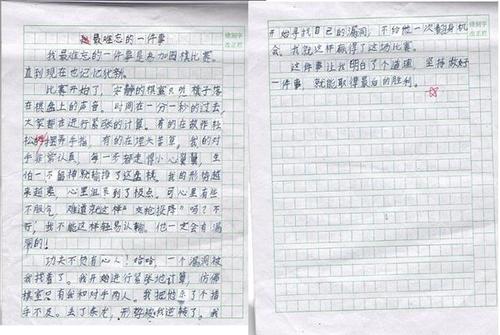 最难忘的一件事
我最难忘的一件事是参加围棋比赛。
直到现在也记忆犹新。
比赛开始了，安静的棋室只听棋子落
在棋盘上的声音。时间在一分一秒的过去，
大家都在进行紧张的计算。有的在故作轻
松的摆弄手指，有的在埋头苦算。我的对
手非常认真，每一步都走得小心翼翼，生
怕一不留神就输掉了这盘棋。我的形势越
来越差，心里沮丧到了极点。可心里有些
不服气，难道就这样“缴枪投降”吗？不
行，我不能这样轻易认输。他一定会有漏
洞的！
功夫不负有心人！哈哈，一个漏洞被
我找着了。我开始进行紧张地计算，仿佛
棋室只有我和对手两人。我把他杀了个措
手不及。去了条龙，形势被我逆转了。我
开始寻找自己的漏洞，不给他一次翻身机
会。我就这样赢得了这场比赛。
这件事让我明白了个道理，坚持做好
一件事，就能取得最后的胜利。